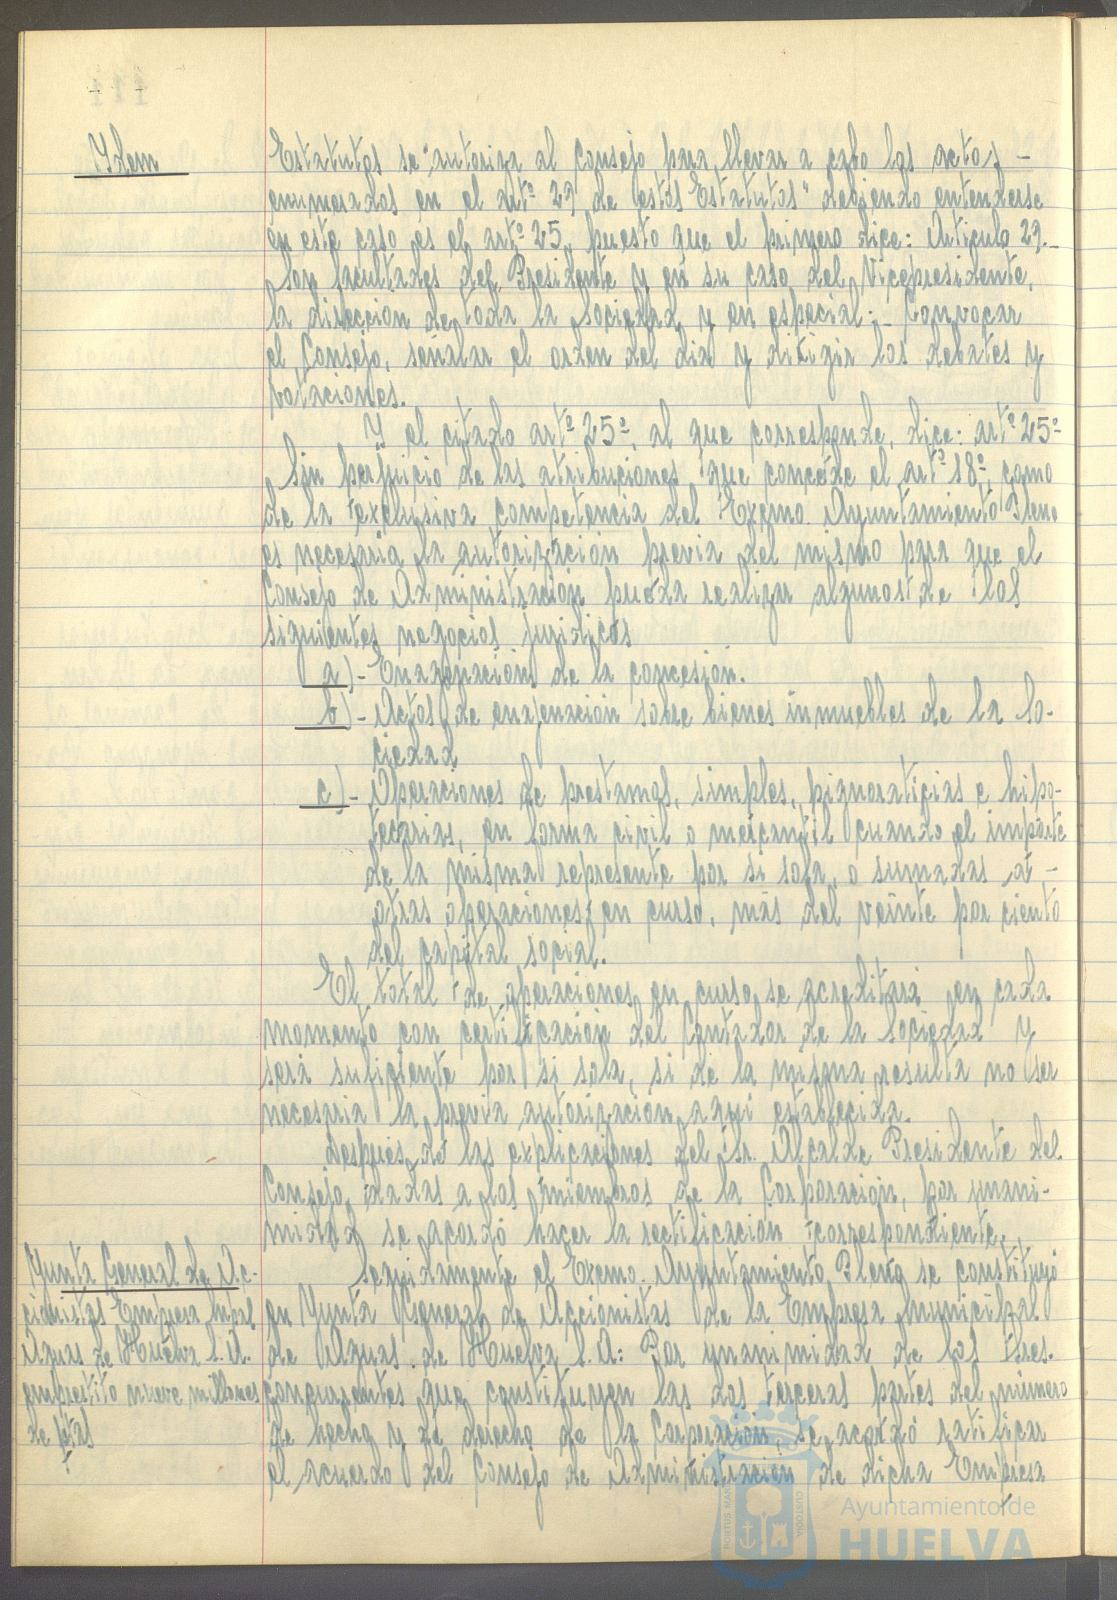 Idem
Estatutos se "autoriza al Consejo para llevar a cabo los actos -
enumerados en el artº 29 de estos Estatutos" debiendo entenderse
en este caso es el artº 25, puesto que el primero dice: Artículo 29.-
Son facultades del Presidente y en su caso del Vicepresidente,
la dirección de toda la Sociedad y en especial:- Convocar
el Consejo, señalar el orden del dia y dirigir los debates y
votaciones.
Y el citado artº 25º, al que corresponde, dice: artº 25º
Sin perjuicio de las atribuciones que concede el artº 18º, como
de la exclusiva competencia del Excmo. Ayuntamiento Pleno
es necesaria la autorización previa del mismo para que el
Consejo de Administración pueda realizar algunos de los
siguientes negocios juridicos
a)- Enagenación de la concesión.
b)- Actos de enajenación sobre bienes inmuebles de la So-
ciedad
c)- Operaciones de prestamos, simples, pignoraticias e hipo-
tecarias, en forma civil o mercantil cuando el importe
de la misma represente por si sola, o sumadas a -
otras operaciones en curso, más del veinte por ciento
del capital social.
El total de operaciones en curso se acreditará en cada
momento con certificación del Contador de la Sociedad y
será suficiente por si sola, si de la misma resulta no ser
necesaria la previa autorización aqui establecida.
Despues de las explicaciones del Sr. Alcalde Presidente del
Consejo, dadas a los miembros de la Corporación, por unani-
midad se acordó hacer la rectificación correspondiente.
Junta General de Ac-
cionistas Empresa Mpal
Aguas de Huelva S.A.
emprestito nueve millones
de ptas
Seguidamente el Excmo. Ayuntamiento Pleno se constituyó
en Junta General de Accionistas de la Empresa Municipal
de Aguas de Huelva S.A: Por unanimidad de los Sres.
concurrentes que constituyen las dos terceras partes del número
de hecho y de derecho de la Corporación, se acordó ratificar
el acuerdo del Consejo de Administración de dicha Empresa
Ayuntamiento de
HUELVA